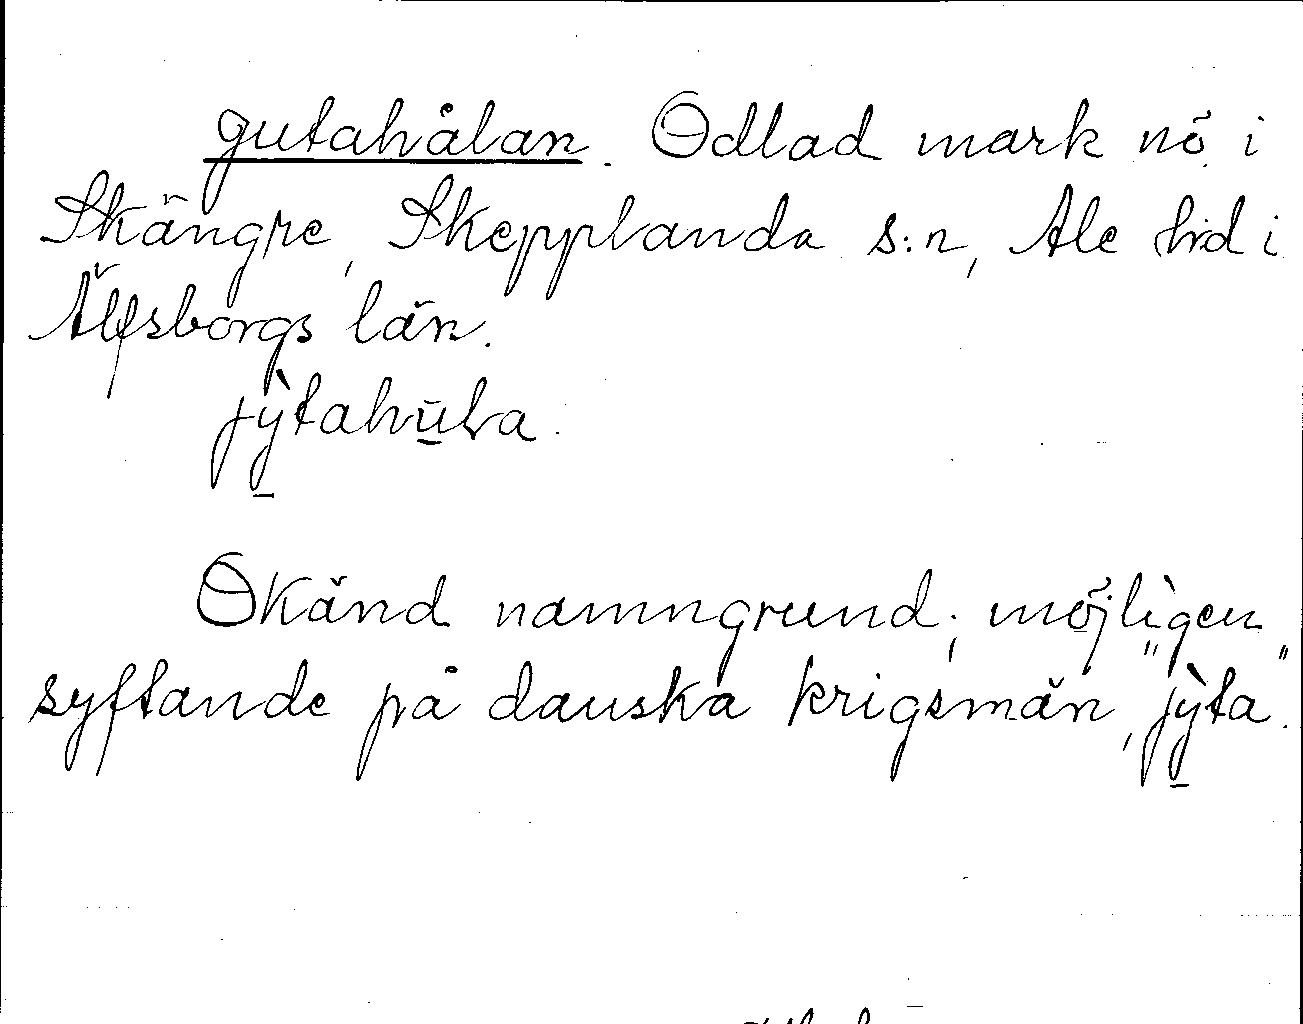 gutahålan. Odlad mark nö i
Skängre, Skepplanda s:n, Ale hrd i
Älfsborgs län.
jỳ̠tahu̠̅la.
Okänd namngrund; möjligen
syftande på danska krigsmän, "jỳ̠ta".